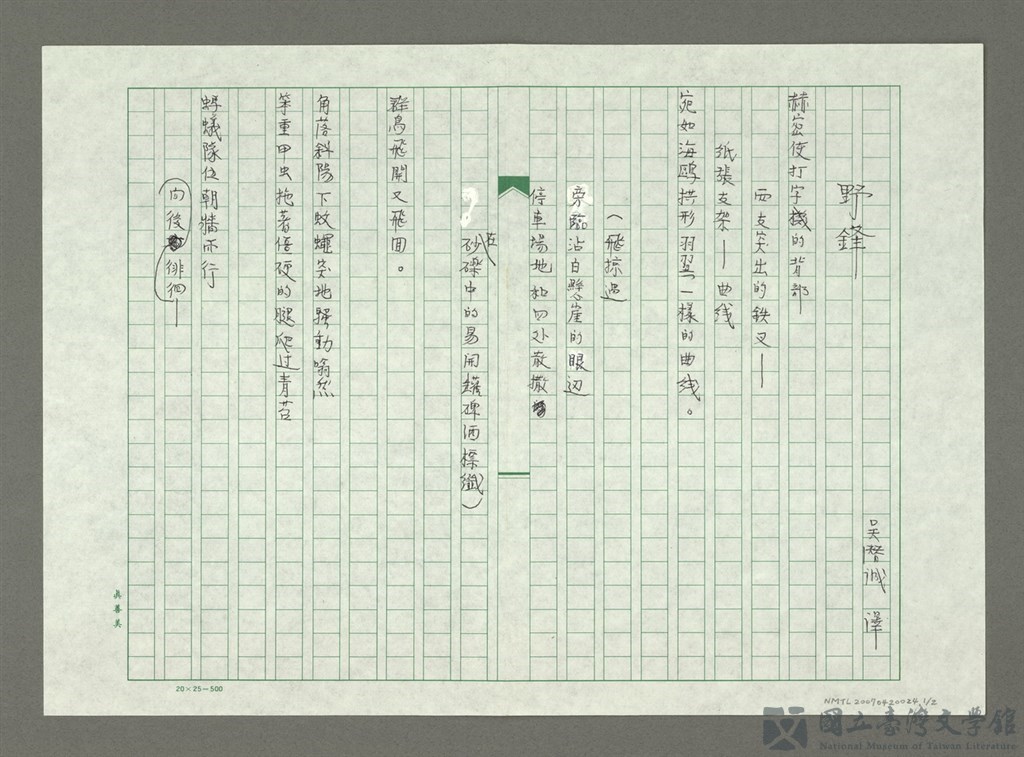 野鋒
吳潛誠 澤
赫密使打字機的背部
四支突出的鉄叉——
纸張支架——曲线
宛如海鷗拱形羽翼一樣的曲线。
(飛掠過
旁臨沾白懸崖的眼边
停車場地和四处散撒
砂礫中的易開罐啤酒標籤)
群鳥飛開又飛回。
角落斜陽下蚊蠅突地騷動嗡然
笨重甲虫拖著僵硬的腿爬过青苔
螞蟻隊伍朝牆而行
向後徘徊——
真善美
20×25=500
NMTL20070420024.1/2
國立臺灣文學館
National Museum of Taiwan Literature